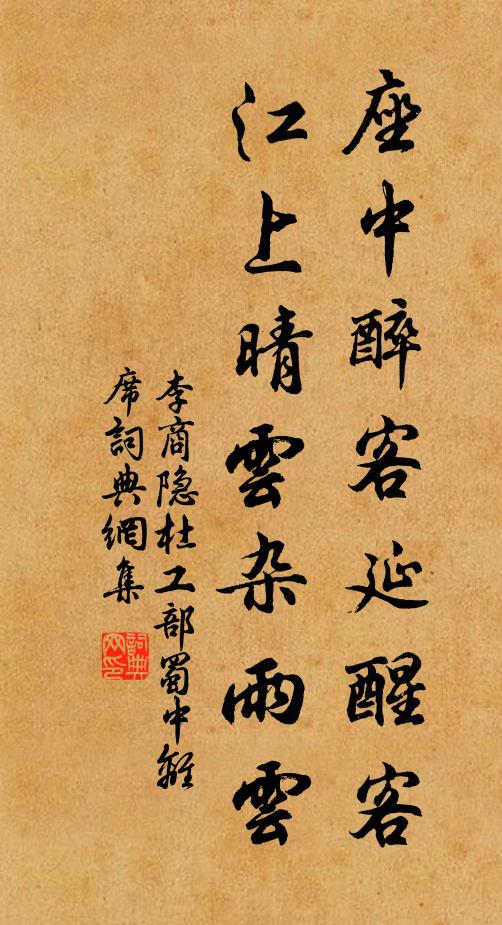 座中醉客延醒客
江上晴雲杂雨雲
李商隐杜工部蜀中離
席詞典網集
詞典网印